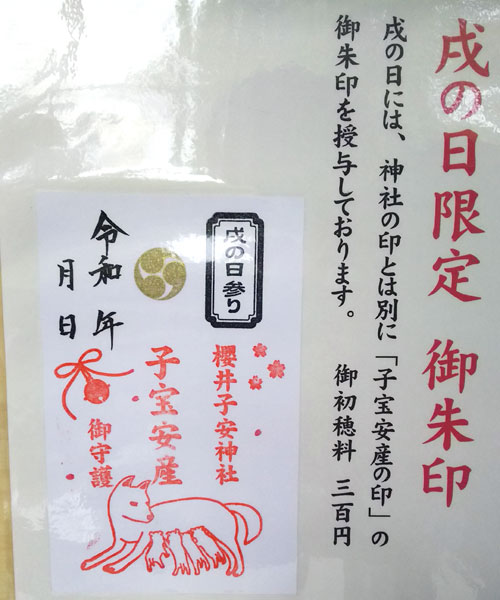 戌の日限定 御朱印
戌の日には、神社の印とは別に「子宝安産の印」の
御朱印を授与しております。 御初穂料 三百円
戌の日参り
櫻井子安神社
子宝安産
御守護
令和 年
月 日